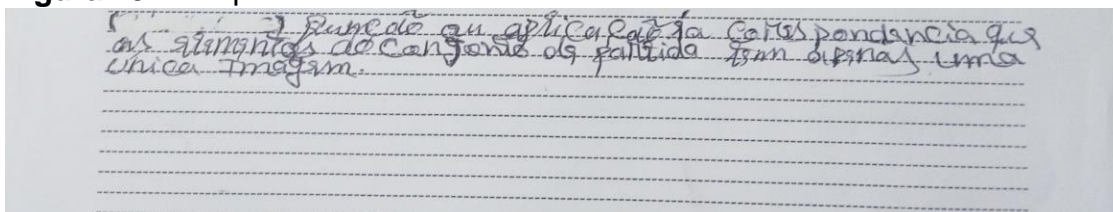 Função ou aplicação é a correspondencia que
os elementos do conjonto de partida tem apenas uma
unica Imagem.